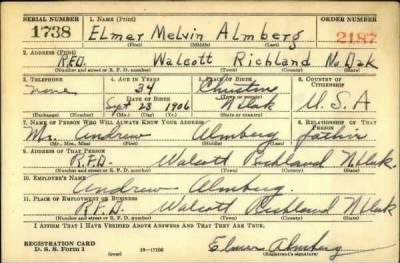 SERIAL NUMBER 1. NAME (Print) ORDER NUMBER
1738 Elmer Melvin Almberg 2187
(First) (Middle) (Last)
2. ADDRESS (Print)
R.F.D. Walcott Richland No. Dak
(Number and street or R. F. D. number) (Town) (County) (State)
3. TELEPHONE 4. AGE IN YEARS 5. PLACE OF BIRTH 6. COUNTRY OF CITIZENSHIP
none 34 Christine
DATE OF BIRTH (Town or county)
Sept 23 1906 N Dak U.S.A
(Exchange) (Number) (Mo.) (Day) (Yr.) (State or country)
7. NAME OF PERSON WHO WILL ALWAYS KNOW YOUR ADDRESS 8. RELATIONSHIP OF THAT PERSON
Mr. Andrew Almberg father
(Mr., Mrs., Miss) (First) (Middle) (Last)
9. ADDRESS OF THAT PERSON
R.F.D. Walcott Richland N. Dak.
(Number and street or R. F. D. number) (Town) (County) (State)
10. EMPLOYER'S NAME
Andrew Almberg.
11. PLACE OF EMPLOYMENT OR BUSINESS
R.F.D. Walcott Richland N Dak
(Number and street or R. F. D. number) (Town) (County) (State)
I AFFIRM THAT I HAVE VERIFIED ABOVE ANSWERS AND THAT THEY ARE TRUE.
REGISTRATION CARD
D. S. S. Form 1 (over) 16—17105 Elmer Almberg
(Registrant's signature)